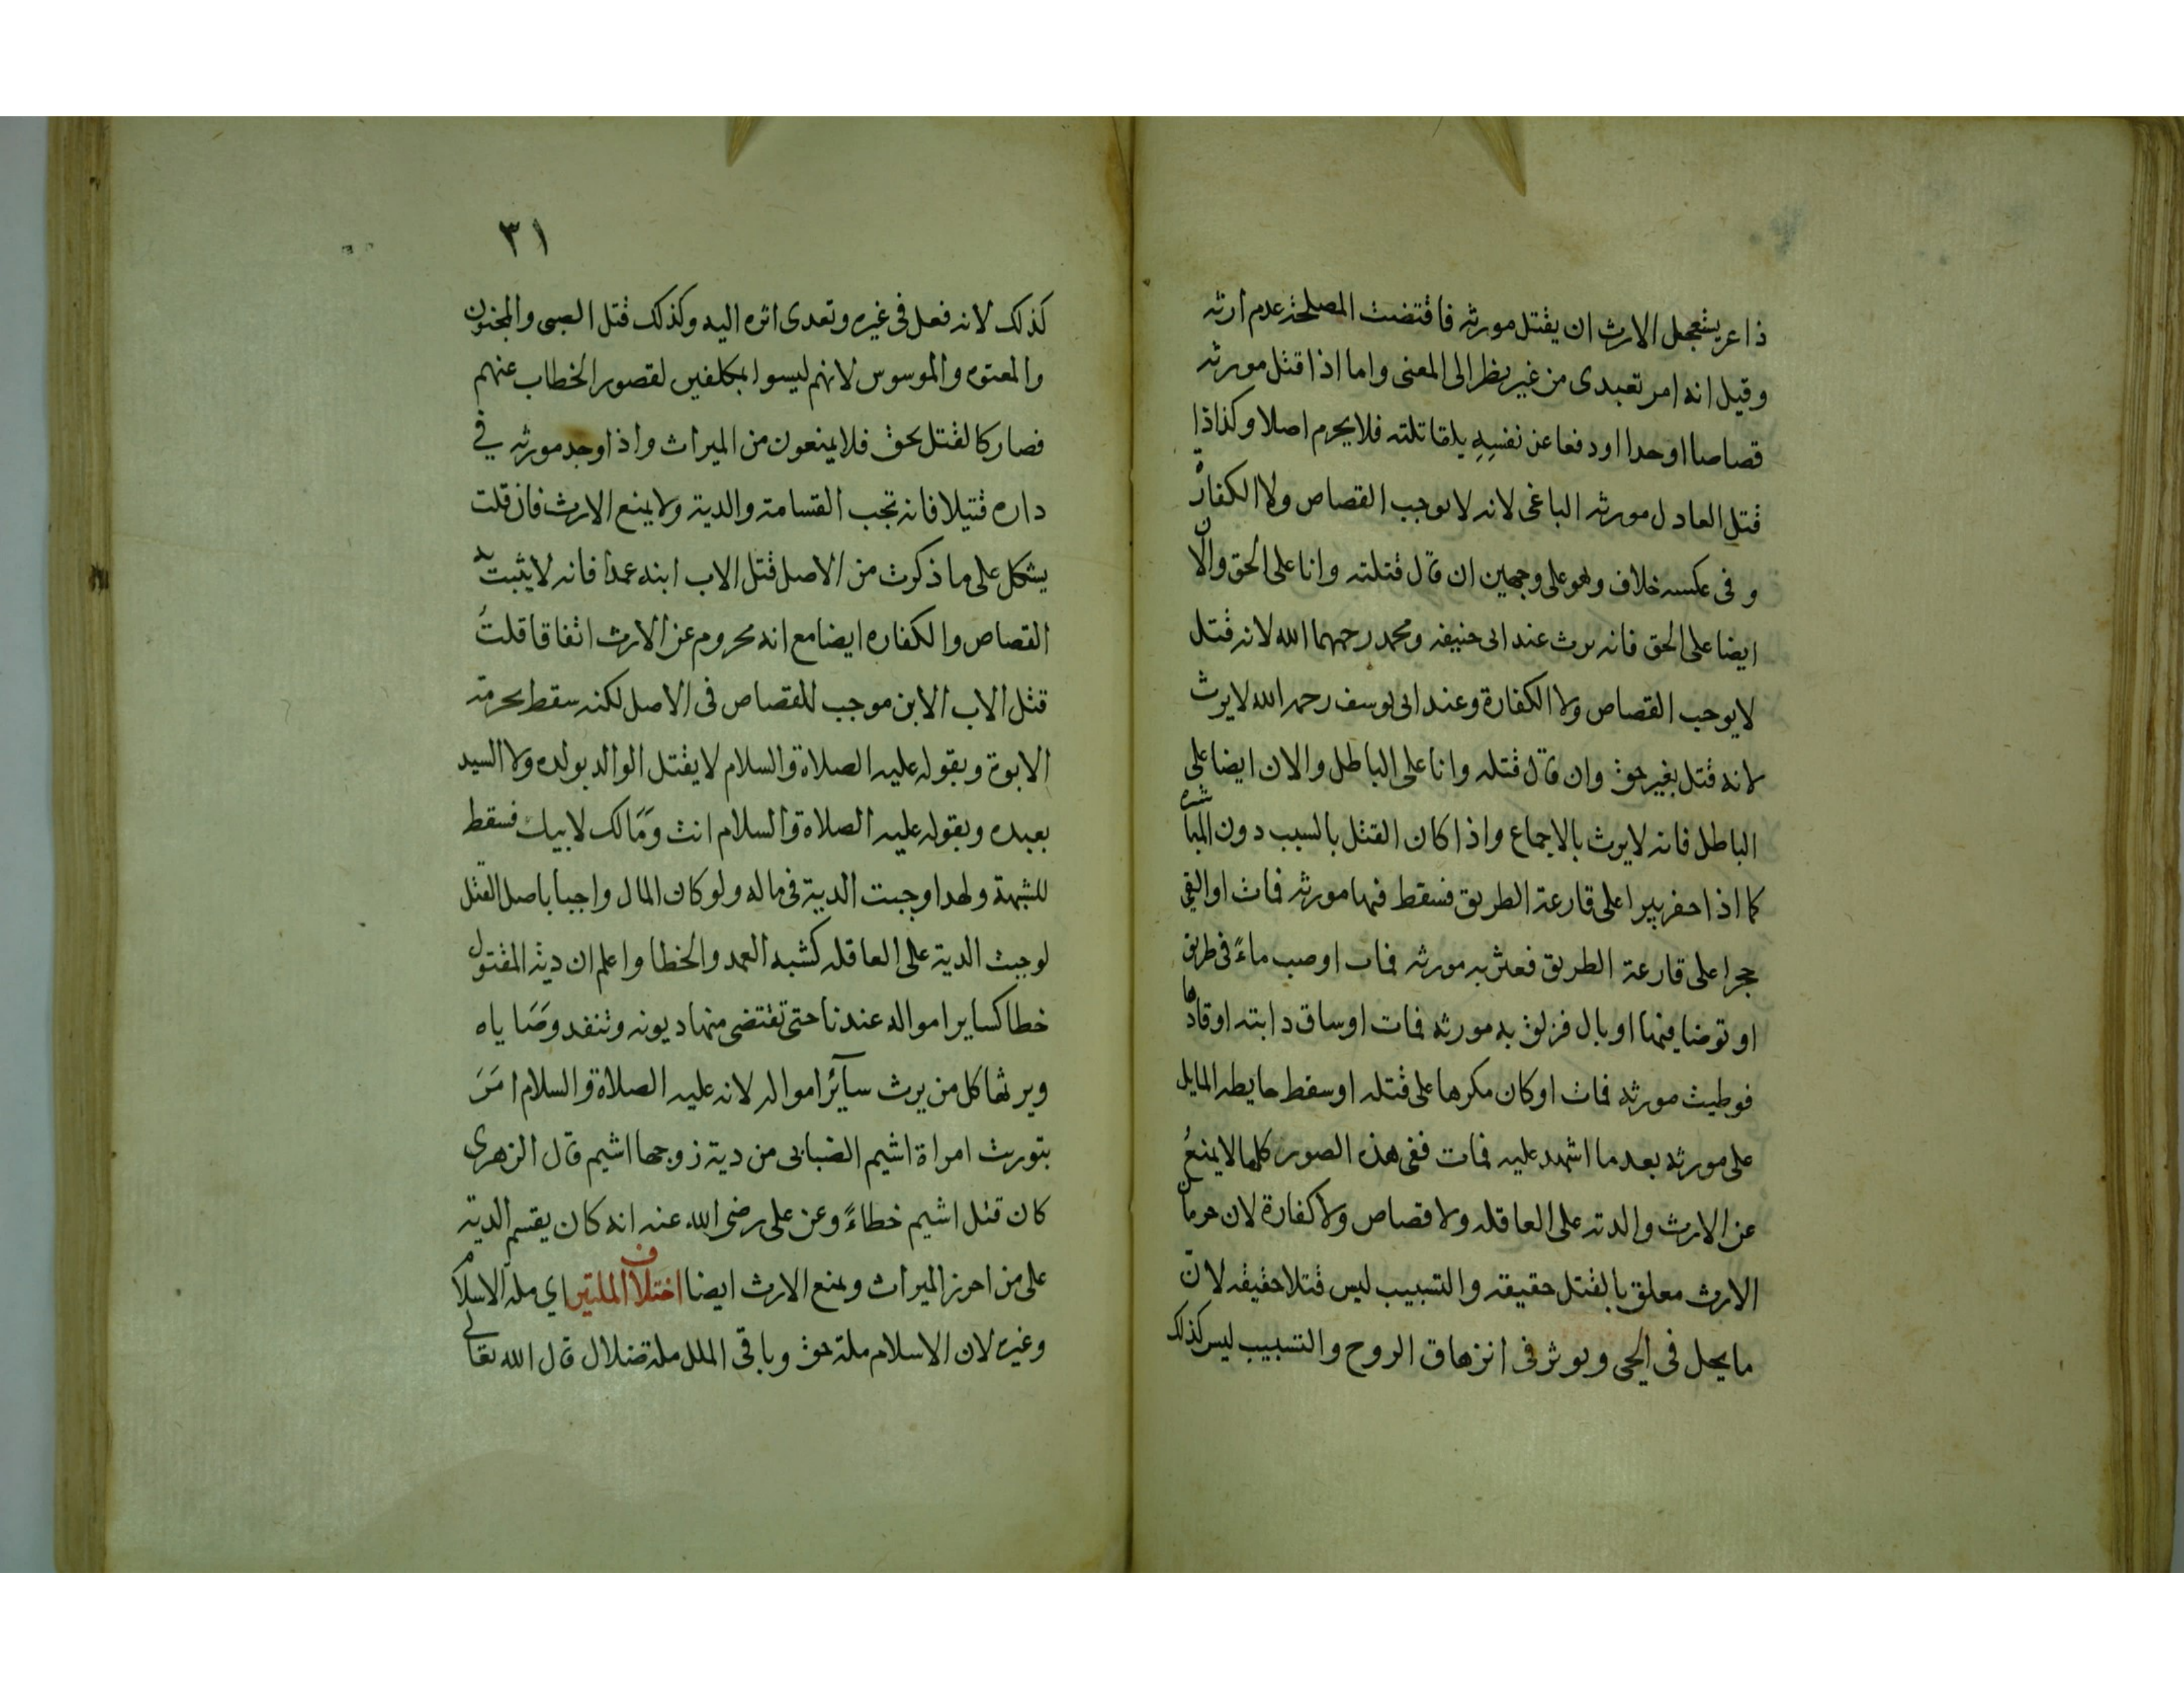 ذا عر يستعجل الارث ان يقتل مورثه فاقتضت المصلحة عدم ارثه
وقيل انه امر تعبدى من غير نظر الى المعنى واما اذا قتل مورثه
قصاصا او حدا او دفعا عن نفسه فلا يحرم اصلا وكذا اذا
قتل العادل مورثه الباغى لانه لا يوجب القصاص ولا الكفارة
وفى عكسه خلاف وهو على وجهين ان قال قتلته وانا على الحق والان
ايضا على الحق فانه يرث عند ابى حنيفه ومحمد رحمهما الله لانه قتل
لا يوجب القصاص ولا الكفارة وعند ابى يوسف رحمه الله لا يرث
لانه قتل بغير حق وان قال قتله وانا على الباطل والان ايضا على
الباطل فانه لا يرث بالاجماع واذا كان القتل بالسبب دون المباشره
كما اذا حفر بيرا على قارعة الطريق فسقط فيها مورثه فمات او القى
حجرا على قارعة الطريق فعثر به مورثه فمات او صب ماءً فى طريق
او توضا فيها او بال فزلق به مورثه فمات او ساق دابته او قادها
فوطيت مورثه فمات او كان مكرها على قتله او سقط حايطه المايل
على مورثه بعد ما اشهد عليه فمات ففى هذه الصور كلها لا يمنعُ
عن الارث والدية على العاقله ولا قصاص ولا كفارة لان حرمان
الارث معلق بالقتل حقيقه والتسبيب ليس قتلا حقيقه لان
ما يحل فى الحى ويوثر فى انزهاق الروح والتسبيب ليس كذلك
٣١
كذلك لانه فعل فى غيره وتعدى اثره اليه وكذلك قتل الصبى والمجنون
والمعتوه والموسوس لانهم ليسوا بمكلفين لقصور الخطاب عنهم
فصار كالقتل بحق فلا يمنعون من الميراث واذا وجد مورثه في
داره قتيلا فانه تجب القسامة والدية ولا يمنع الارث فان قلت
يشكل على ما ذكرت من الاصل قتل الاب ابنه عمدا فانه لا يثبت به
القصاص والكفاره ايضا مع انه محروم عن الارث اتفاقا قلتُ
قتل الاب الابن موجب للقصاص فى الاصل لكنه سقط بحرمة
الابوة وبقوله عليه الصلاة والسلام لا يقتل الوالد بولده ولا السيد
بعبده وبقوله عليه الصلاة والسلام انت ومَالك لابيك فسقط
للشبهة ولهدا وجبت الدية فى ماله ولو كان المال واجبا باصل القتل
لوجبت الدية على العاقله كشبه العمد والخطا واعلم ان دية المقتول
خطا كساير امواله عندنا حتى تقتضى منها ديونه وتنفد وصَاياه
ويرثها كل من يرث سآئر امواله لانه عليه الصلاة والسلام امَرَ
بتورث امراة اشيم الضبابى من دية زوجها اشيم قال الزهرى
كان قتل اشيم خطاءً وعن على رضى الله عنه انه كان يقسم الدية
على من احرز الميراث ويمنع الارث ايضا اختلاف الملتين اي ملة الاسلام
وغيره لان الاسلام ملة حق وباقى الملل ملة ضلال قال الله تعالى